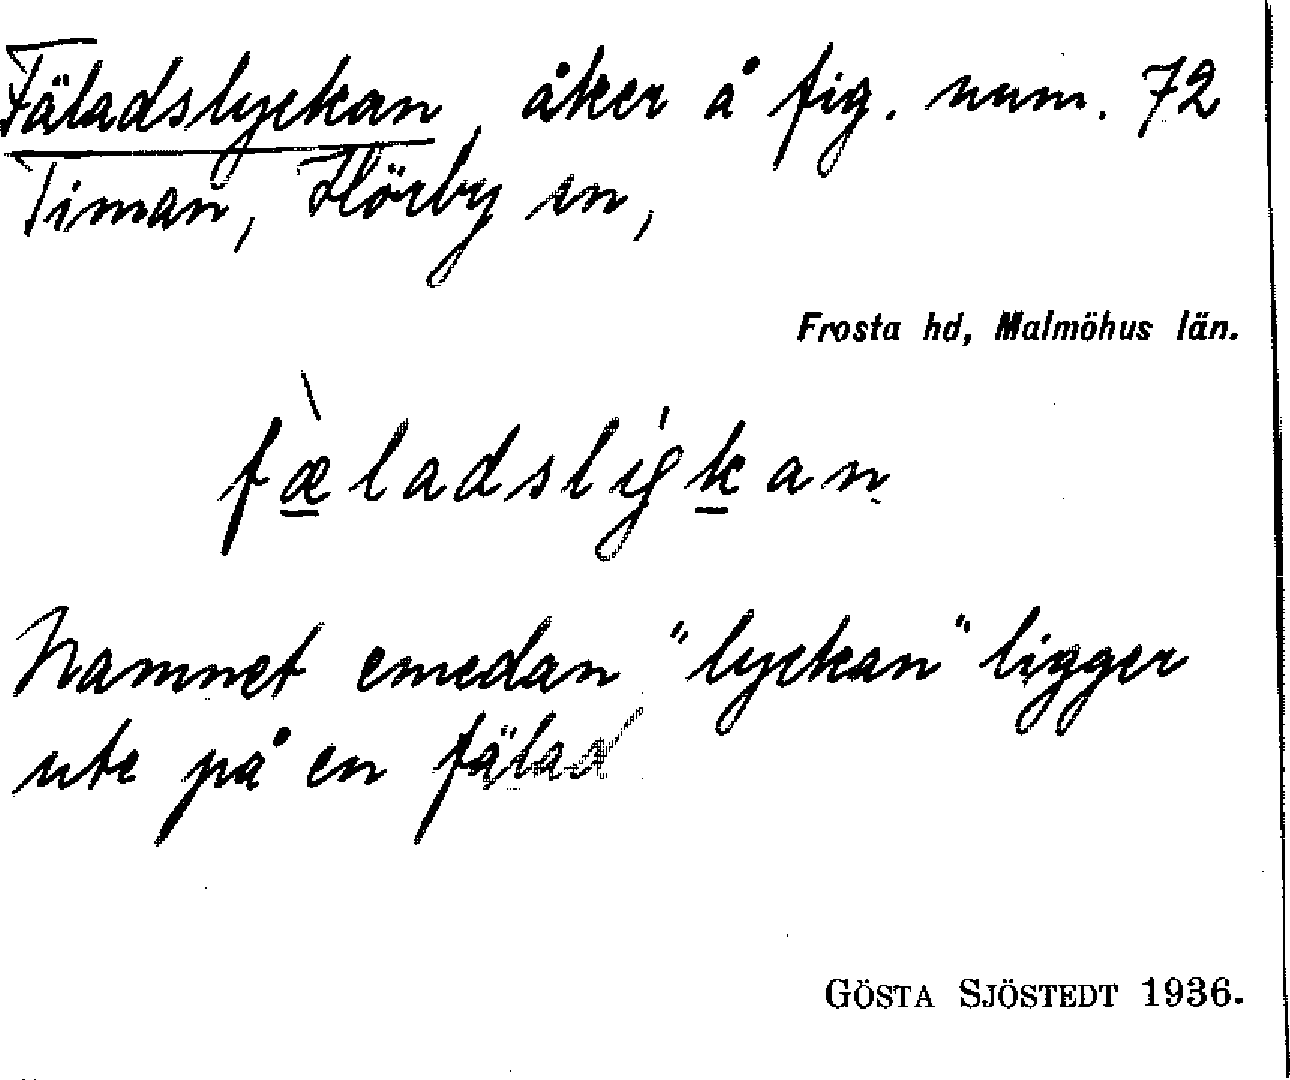 Fäladslyckan, åker å fig. num. 72
Timan, Hörby sn,
Frosta hd, Malmöhus län.
fæ̀ladslýkan
Namnet emedan "lyckan" ligger
ute på en fälad
GÖSTA SJÖSTEDT 1936.